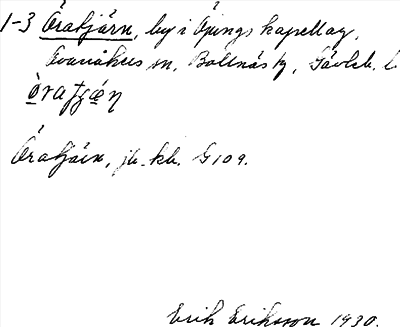 1-3 Öratjärn, by i Öjungs kapellag,
Svanåkers sn, Bollnäs tg, Gävleb. l.
Öratjärn, jb. kb. G109.
Erik Eriksson 1930.